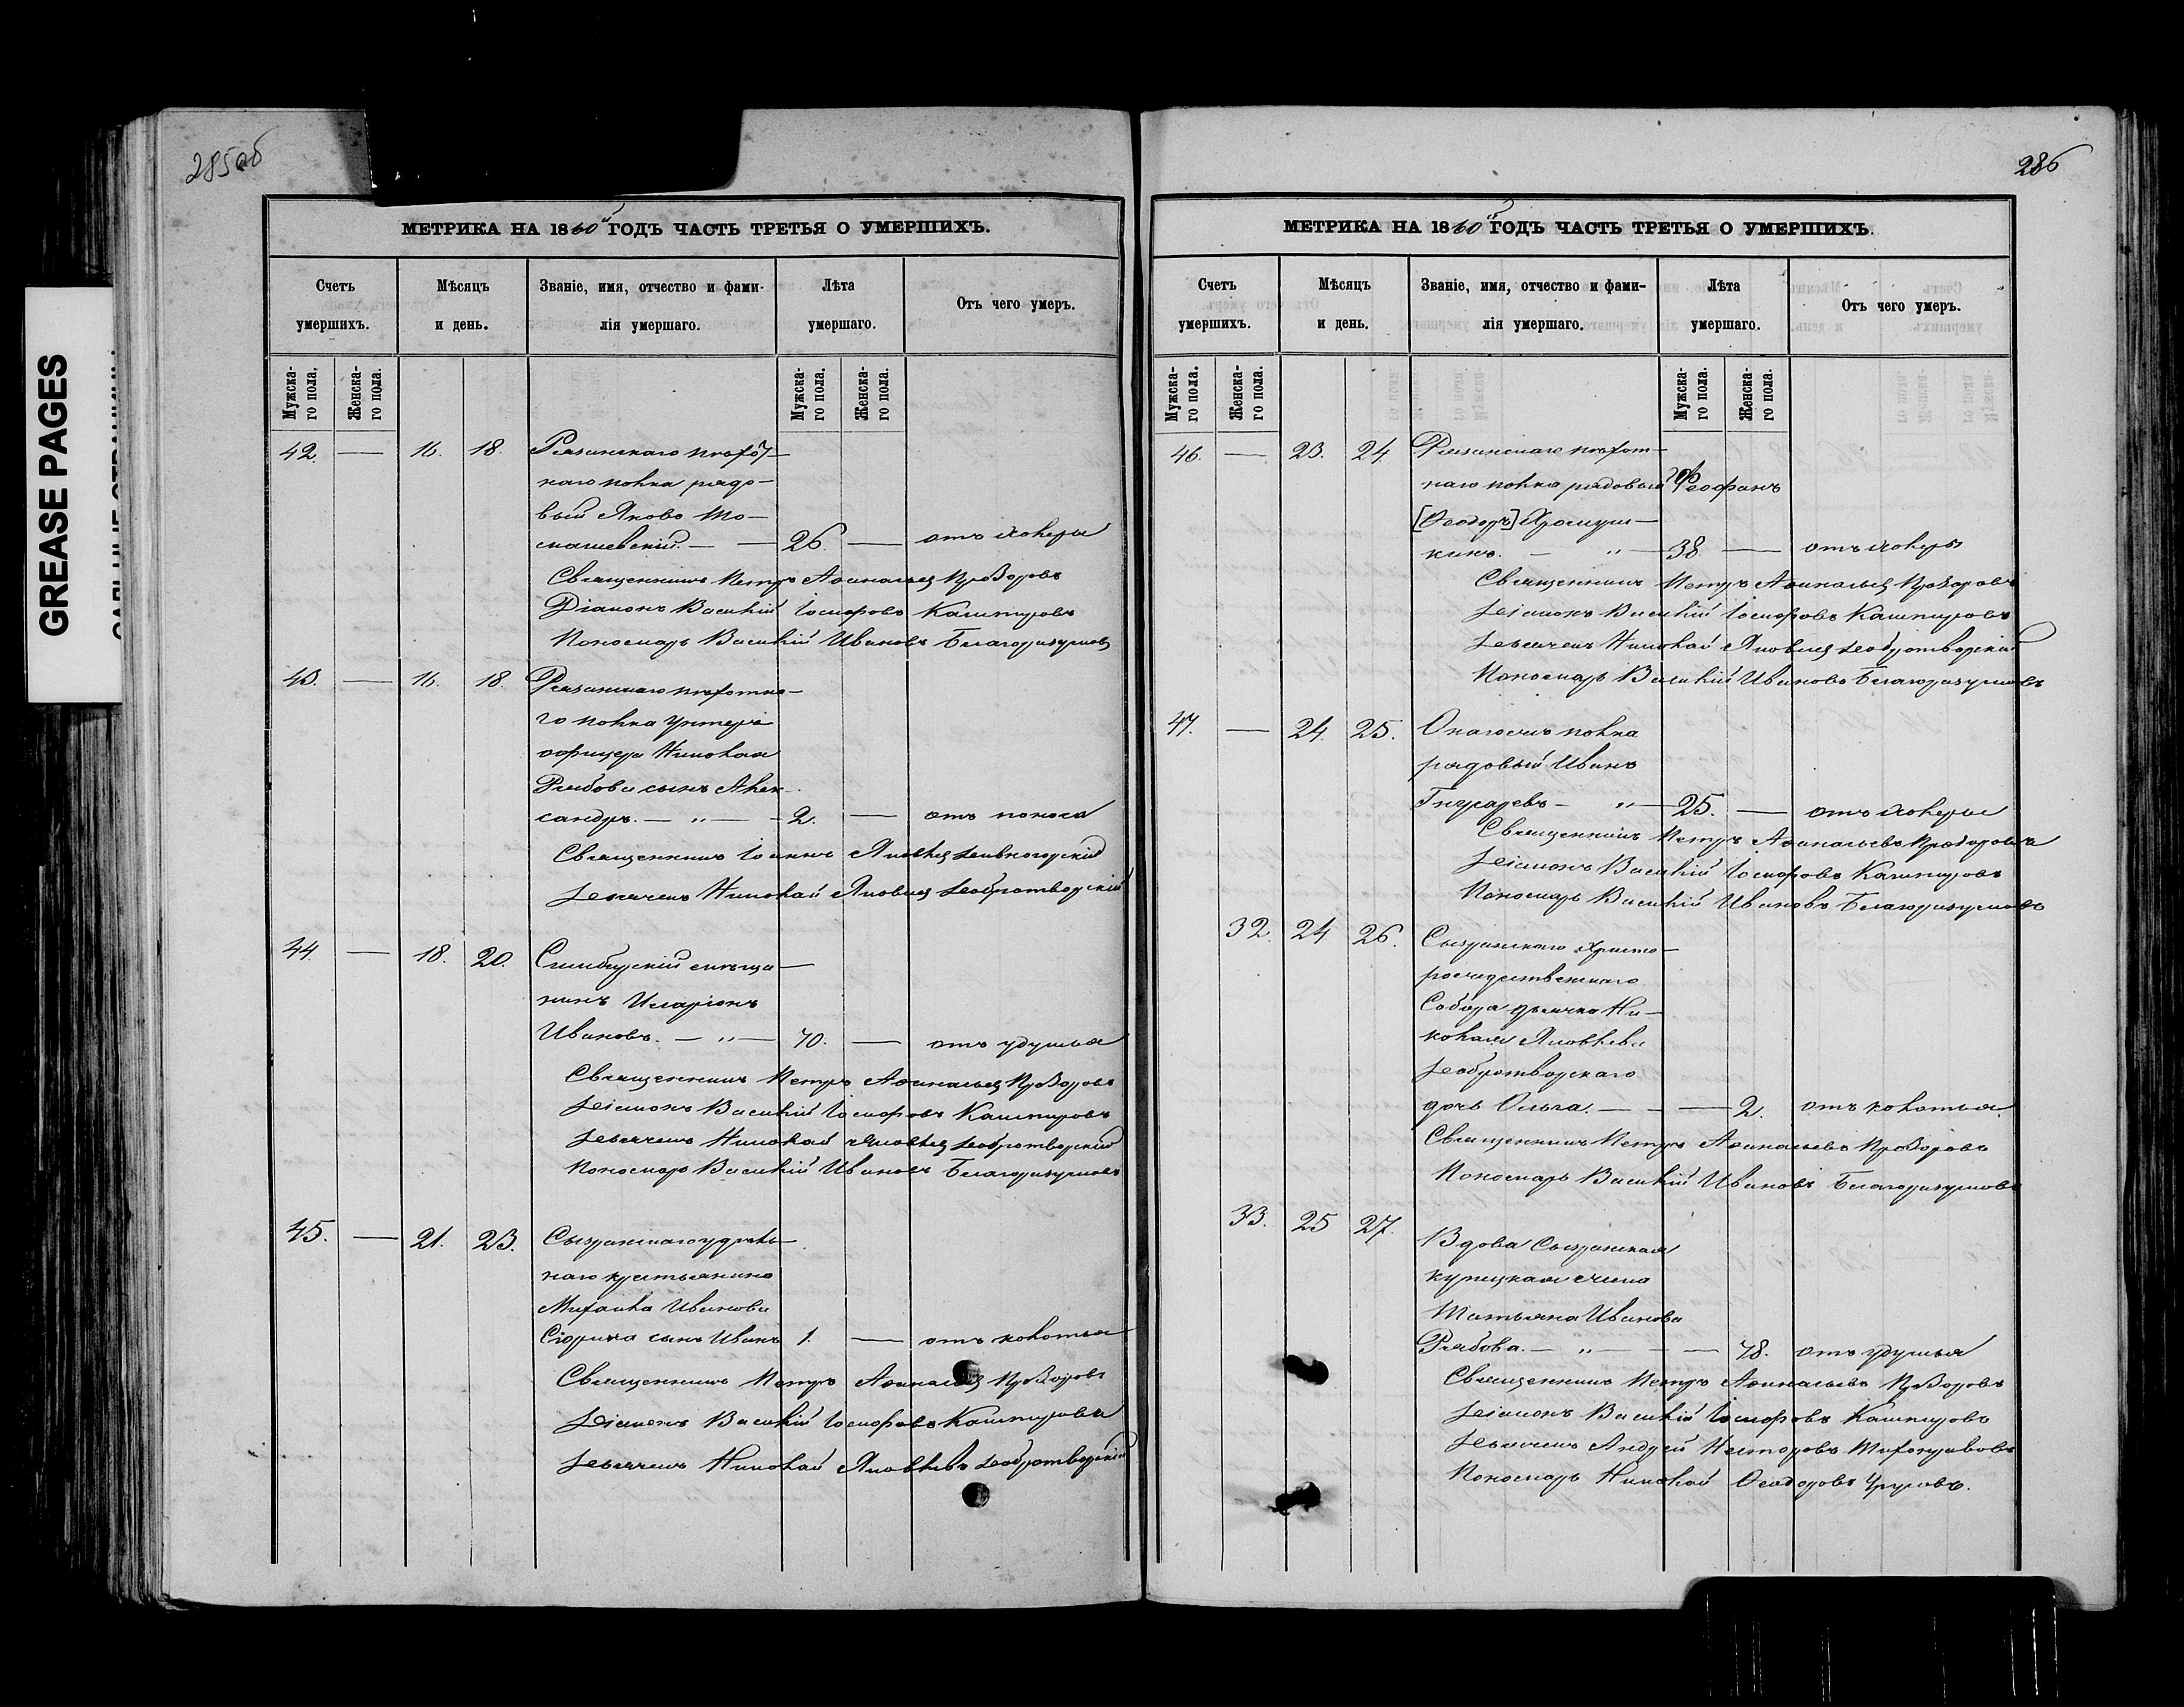 GREASE PAGES
285об
МЕТРИКА НА 1860й ГОДЪ ЧАСТЬ ТРЕТЬЯ О УМЕРШИХЪ.
Счетъ умершихъ.
Мѣсяцъ и день.
Званіе, имя, отчество и фами-
лія умершаго.
Лѣта умершаго.
Отъ чего умеръ.
Мужска-
го пола.
Женска-
го пола.
Мужска-
го пола.
Женска-
го пола.
42. — 16. 18. Рязанскаго пѣхот-
наго полка рядо-
вый Яковъ То-
машевскій. — 26. — отъ холеры
Священникъ Петръ Аѳанасьев Прозоровъ
Діаконъ Василій Іосифовъ Кашпировъ
Пономарь Василій Ивановъ Благоразумов
43. — 16. 18. Рязанскаго пѣхотна-
го полка унтеръ
офицера Николая
Рябова сынъ Алек-
сандръ. — „ — 2. — отъ поноса
Священникъ Іоаннъ
Дьячекъ Николай Яковлев Добротворскій
44. — 18. 20. Симбирскій мѣща-
нинъ Иларіонъ
Ивановъ. — „ — 70. — отъ удушья
Священникъ Петръ Аѳанасьев Прозоровъ
Діаконъ Василій Іосифовъ Кашпировъ
Дьячекъ Николай Яковлев Добротворскій
Пономарь Василій Ивановъ Благоразумовъ
45. — 21. 23. Сызранскаго удѣль-
наго крестьянина
Михаила Иванова
сынъ Иванъ 1. — отъ колотья
Священникъ Петръ Аѳанасьев Прозоровъ
Діаконъ Василій Іосифовъ Кашпировъ
Дьячекъ Николай Яковлевъ Добротворскій
286
МЕТРИКА НА 1860й ГОДЪ ЧАСТЬ ТРЕТЬЯ О УМЕРШИХЪ.
Счетъ умершихъ.
Мѣсяцъ и день.
Званіе, имя, отчество и фами-
лія умершаго.
Лѣта умершаго.
Отъ чего умеръ.
Мужска-
го пола.
Женска-
го пола.
Мужска-
го пола.
Женска-
го пола.
46. — 23. 24. Рязанскаго пѣхот-
наго полка рядовый Феофанъ
[Ѳеодоръ] Хромуш-
кинъ. — „ — 38 — отъ холеры
Священникъ Петръ Аѳанасьев Прозоровъ
Діаконъ Василій Іосифовъ Кашпировъ
Дьячекъ Николай Яковлев Добротворскій
Пономарь Василій Ивановъ Благоразумовъ
47. — 24. 25. Онагожъ полка
рядовый Иванъ
— „ — 25. — отъ холеры
Священникъ Петръ Аѳанасьевъ Прозоровъ
Діаконъ Василій Іосифовъ Кашпировъ
Пономарь Василій Ивановъ Благоразумовъ
32. 24 26. Сызранскаго Христо-
рождественскаго
Собора дьячка Ни-
колая Яковлева
Добротворскаго
дочь Ольга. — — — 2. отъ колотья.
Священникъ Петръ Аѳанасьевъ Прозоровъ
Пономарь Василій Ивановъ Благоразумовъ
33. 25 27. Вдова Сызранская
купецкая жена
Татьяна Иванова
Рябова. — „ — — 78. отъ удушья
Священникъ Петръ Аѳанасьевъ Прозоровъ
Діаконъ Василій Іосифовъ Кашпировъ
Дьячекъ Андрей Несторовъ Тихонравовъ
Пономарь Николай Ѳеодоровъ